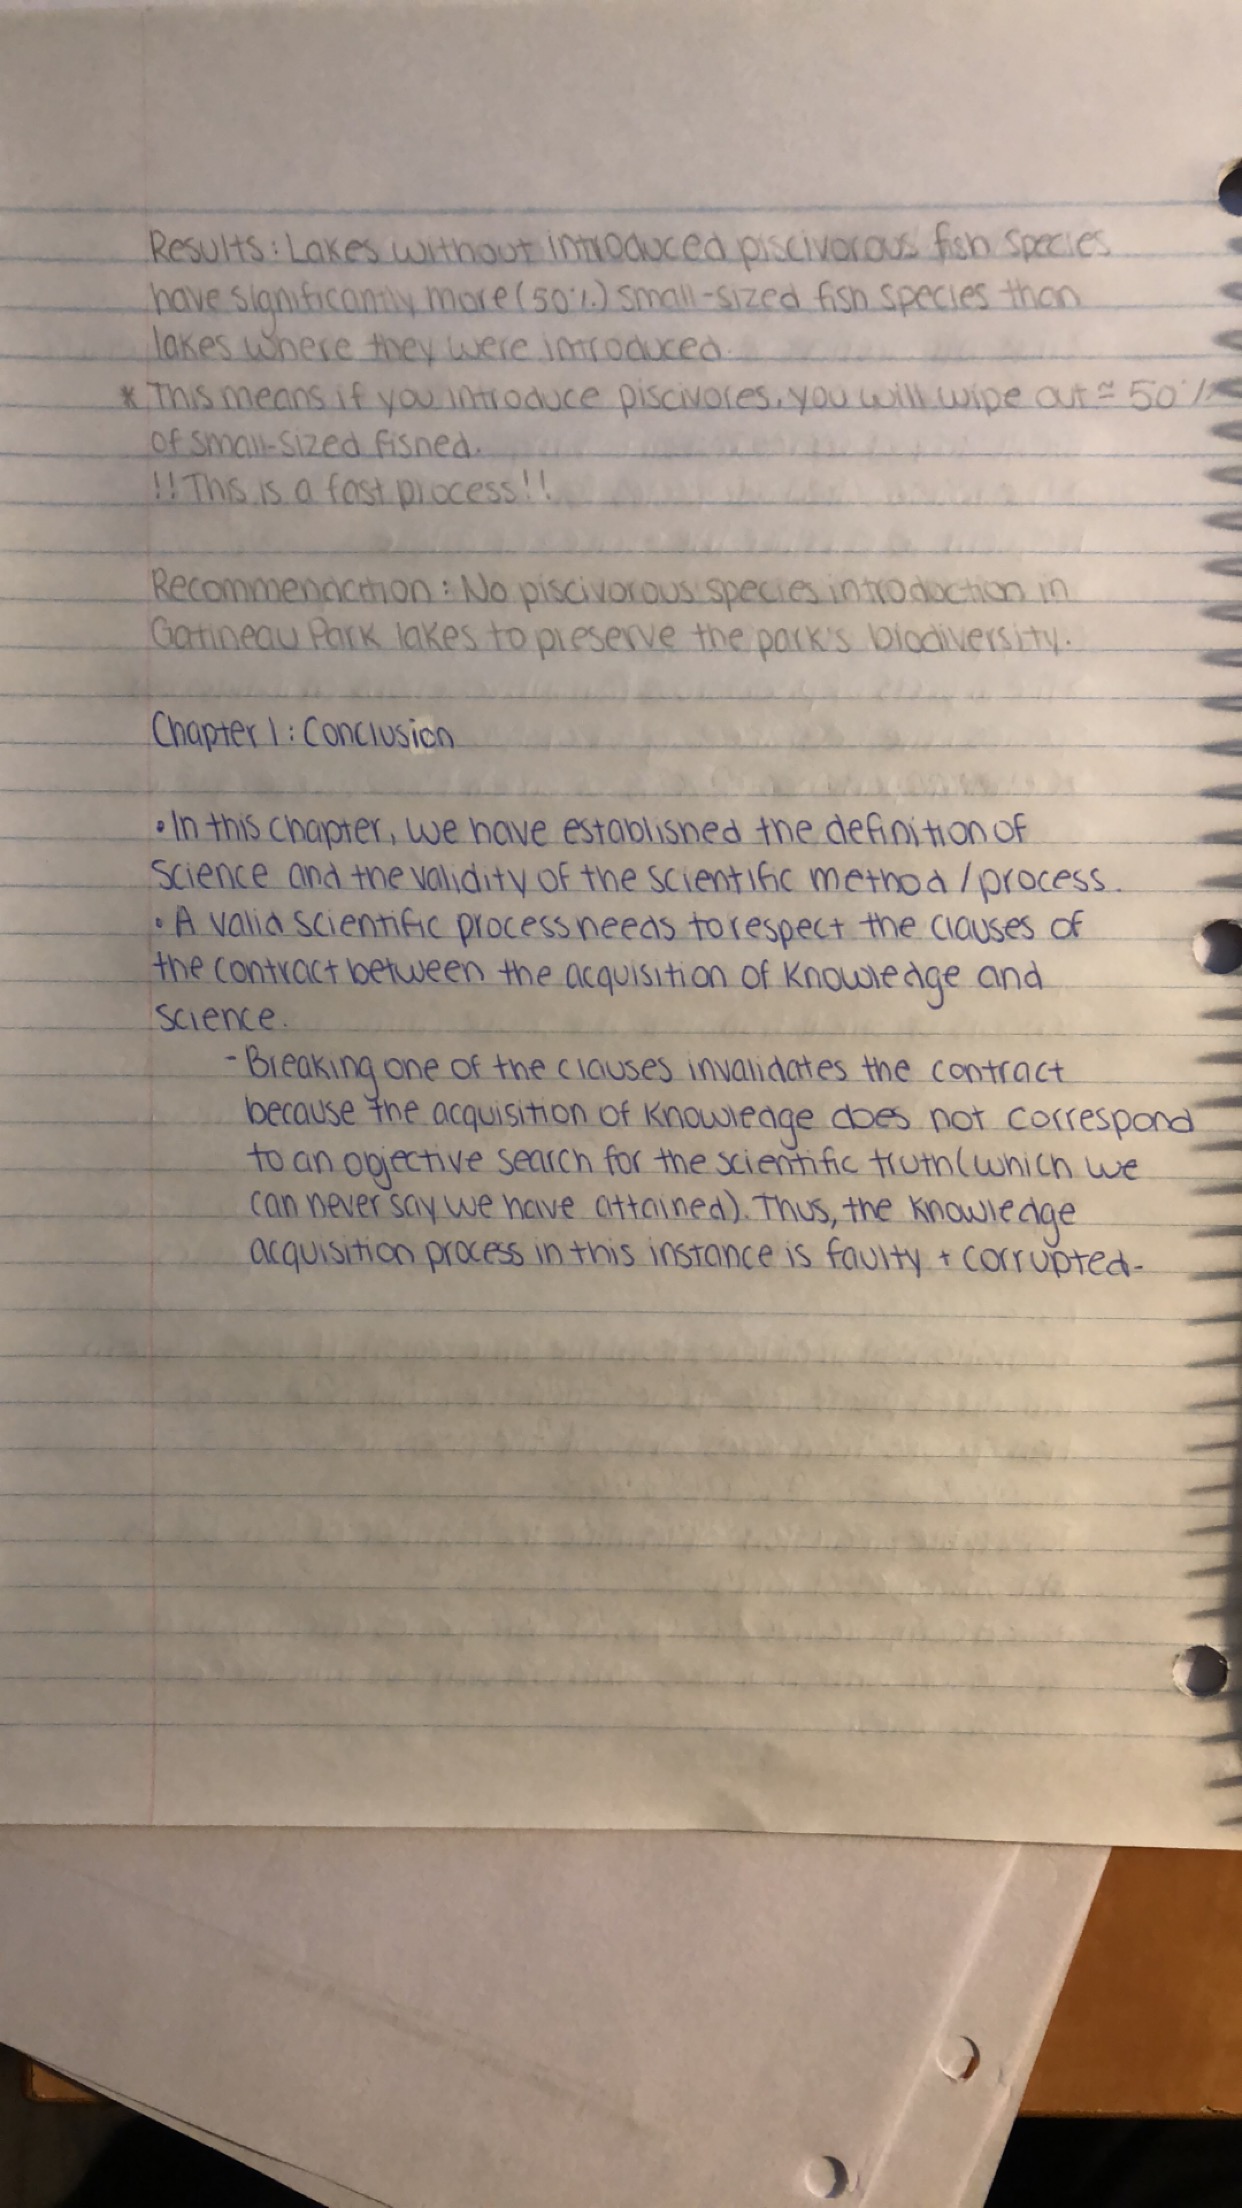 Results: Lakes without introduced piscivorous fish species
have significantly more (50%) small-sized fish species than
lakes where they were introduced.
* This means if you introduce piscivores, you will wipe out ≃ 50%
of small-sized fished.
!! This is a fast process!!
Recommendation: No piscivorous species introduction in
Gatineau Park lakes to preserve the park's biodiversity.
Chapter 1: Conclusion
• In this chapter, we have established the definition of
science and the validity of the scientific method / process.
• A valid scientific process needs to respect the clauses of
the contract between the acquisition of knowledge and
science.
- Breaking one of the clauses invalidates the contract
because the acquisition of knowledge does not correspond
to an objective search for the scientific truth (which we
can never say we have attained). Thus, the knowledge
acquisition process in this instance is faulty + corrupted.